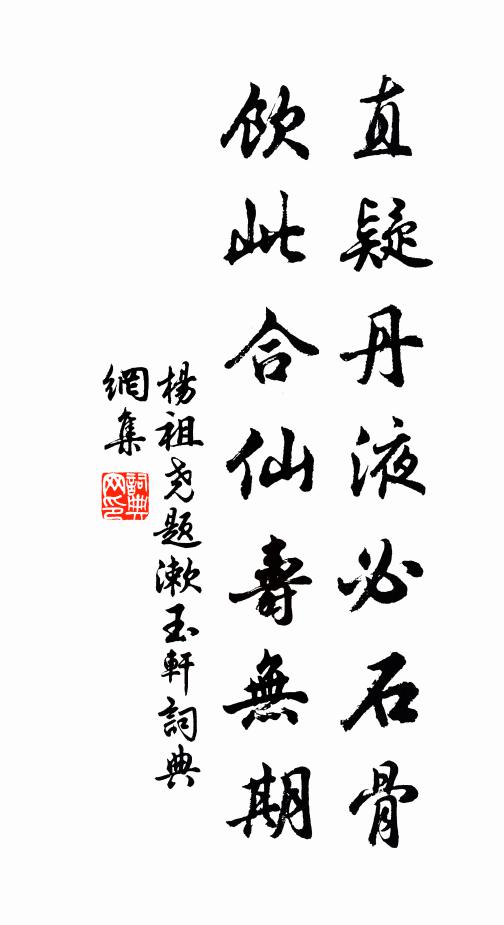 直疑丹液必石骨
飲此合仙壽無期
楊祖堯題漱玉軒詞典
網集
詞典
网印